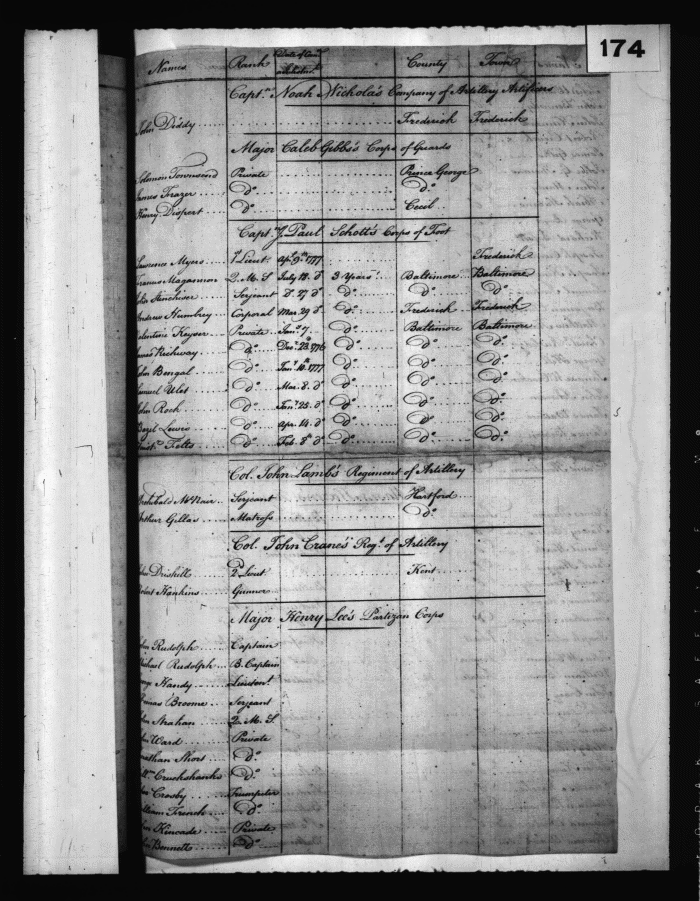 174
Names Rank Date of Com.n or Enlistm.t County Town
Capt.n Noah Nichola's Company of Artillery Artificers
John Doddy Frederick Frederick
Major Caleb Gibbs's Corps of Guards
Solomon Townsend Private Prince George
James Frazer D.o D.o
Henry Dispert D.o Cecil
Capt. J. Paul Schott's Corps of Foot
Lawrence Myers 1.st Lieut. Ap.l 9.th 1777 Frederick
Magannon Q. M. S July 12. d.o 3 Years Baltimore Baltimore
Serjeant D. 27 d.o D.o D.o D.o
Andrew Humbrey Corporal Mar. 29 d.o D.o Frederick Frederick
Valentine Keyser Private Jan.y 7. D.o Baltimore Baltimore
Richway D.o Dec.r 23. 1776 D.o D.o D.o
John Bengal D.o Jan.y 10.th 1777 D.o D.o D.o
Samuel Ulet D.o Mar. 8. d.o D.o D.o D.o
John Rock D.o Jan.y 25. d.o D.o D.o D.o
Bazil Lewis D.o Apr. 14. d.o D.o D.o D.o
Felts D.o Feb. 8 d.o D.o D.o D.o
Col. John Lamb's Regiment of Artillery
Archibald McNair Serjeant Hartford
Arthur Gillas Matross D.o
Col. John Crane's Reg.t of Artillery
Driskill 2.d Lieut. Kent
Hankins Gunner
Major Henry Lee's Partizan Corps
John Rudolph Captain
Michael Rudolph B. Captain
George Handy Lieuten.t
Broome Serjeant
John Strahan Q. M. S.
John Ward Private
Jonathan Short D.o
W.m Cruchshanks D.o
Crosby Trumpeter
William French D.o
Kincade Private
John Bennett D.o